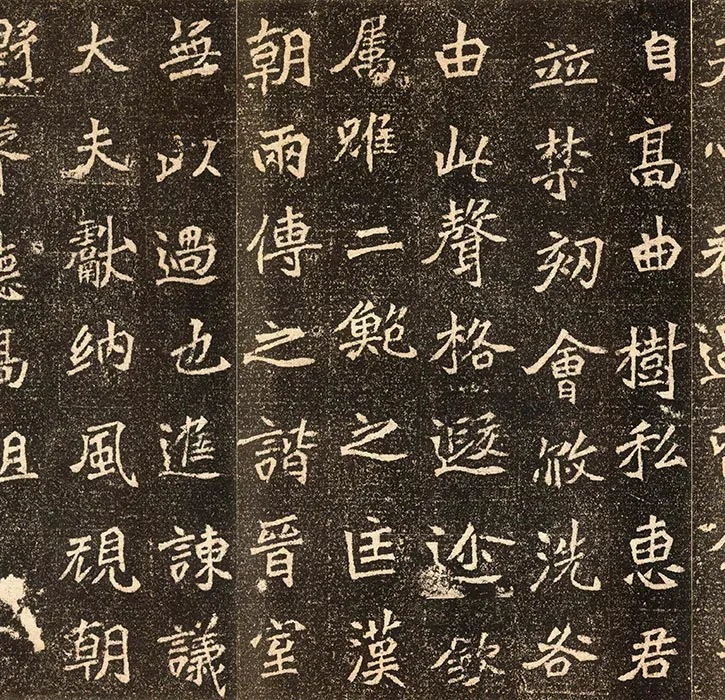 自高曲樹私惠君
並禁劾會洗咎
由此聲格遐迩欽
属雖二鮑之匡漢
朝兩傳之諧晉室
無以過也進諫議
大夫獻納風規朝
野德高